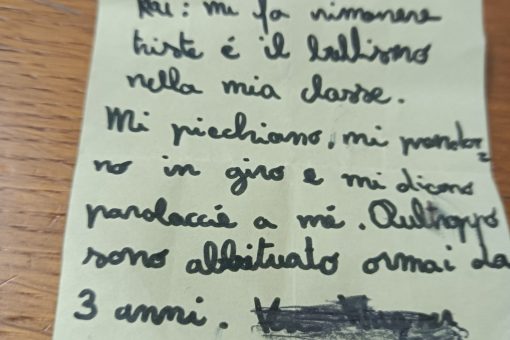 : mi fa rimanere
triste é il bullismo
nella mia classe.
Mi picchiano, mi prendo=
no in giro e mi dicono
parolaccie a mé. Pultroppo
sono abbituato ormai da
3 anni.